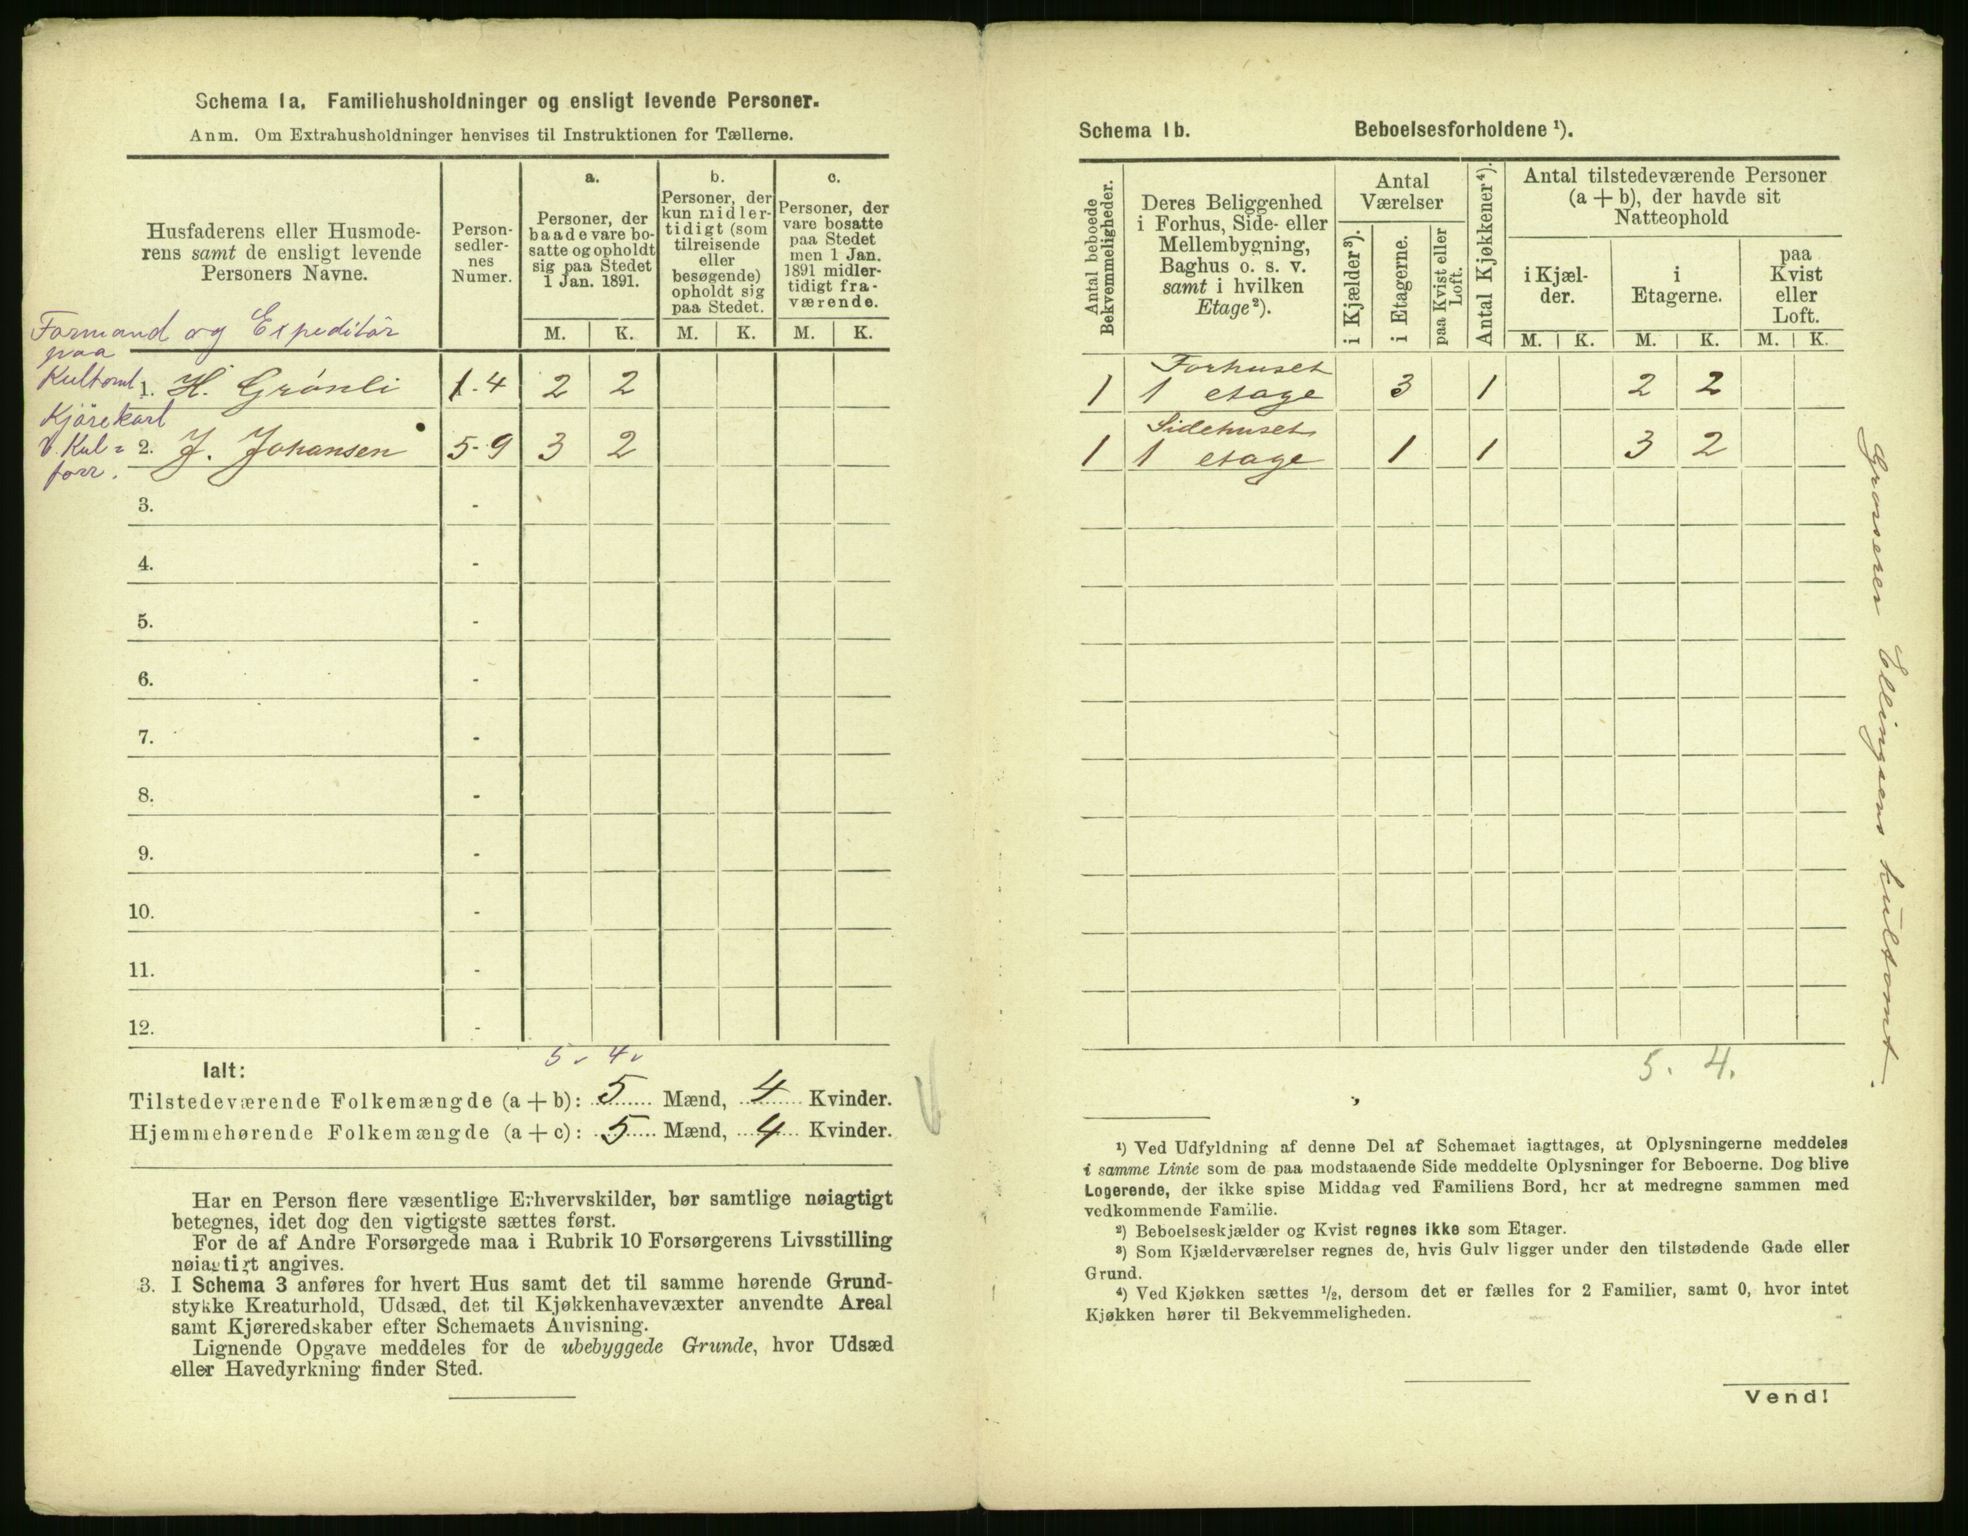 Schema 1a. Familiehusholdninger og ensligt levende Personer.
Anm. Om Extrahusholdninger henvises til Instruktionen for Tællerne.
Husfaderens eller Husmode-
rens samt de ensligt levende
Personers Navne.
Person-
sedler-
nes
Numer.
a.
Personer, der
baade vare bo-
satte og opholdt
sig paa Stedet
1 Jan. 1891.
b.
Personer, der
kun midler-
tidigt (som
tilreisende
eller
besøgende)
opholdt sig
paa Stedet.
c.
Personer, der
vare bosatte
paa Stedet
men 1 Jan.
1891 midler-
tidigt fra-
værende.
M. K. M. K. M. K.
Formand og Expeditör
paa
Kultomt
1. H. Grönli 1-4 2 2
Kjörekarl
v. Kul=
forr.
2. J. Johansen 5-9 3 2
3. -
4. -
5. -
6. -
7. -
8. -
9. -
10. -
11. -
12. -
5. 4.
Ialt:
Tilstedeværende Folkemængde (a + b): 5 Mænd, 4 Kvinder.
Hjemmehørende Folkemængde (a + c): 5 Mænd, 4 Kvinder.
Har en Person flere væsentlige Erhvervskilder, bør samtlige nøiagtigt
betegnes, idet dog den vigtigste sættes først.
For de af Andre Forsørgede maa i Rubrik 10 Forsørgerens Livsstilling
nøiagtigt angives.
3. I Schema 3 anføres for hvert Hus samt det til samme hørende Grund-
stykke Kreaturhold, Udsæd, det til Kjøkkenhavevæxter anvendte Areal
samt Kjøreredskaber efter Schemaets Anvisning.
Lignende Opgave meddeles for de ubebyggede Grunde, hvor Udsæd
eller Havedyrkning finder Sted.
Schema 1b. Beboelsesforholdene ¹).
Antal beboede
Bekvemmeligheder.
Deres Beliggenhed
i Forhus, Side- eller
Mellembygning,
Baghus o. s. v.
samt i hvilken
Etage²).
Antal
Værelser
i Kjælder³).
i Etagerne.
paa Kvist eller
Loft.
Antal Kjøkkener⁴).
Antal tilstedeværende Personer
(a + b), der havde sit
Natteophold
i Kjæl-
der.
i
Etagerne.
paa
Kvist
eller
Loft.
M. K. M. K. M. K.
Forhuset
1 1 etage 3 1 2 2
Sidehuset
1 1 etage 1 1 3 2
5. 4.
Grosserer Ellingsens kultomt.
¹) Ved Udfyldning af denne Del af Schemaet iagttages, at Oplysningerne meddeles
i samme Linie som de paa modstaaende Side meddelte Oplysninger for Beboerne. Dog blive
Logerende, der ikke spise Middag ved Familiens Bord, her at medregne sammen med
vedkommende Familie.
²) Beboelseskjælder og Kvist regnes ikke som Etager.
³) Som Kjælderværelser regnes de, hvis Gulv ligger under den tilstødende Gade eller
Grund.
⁴) Ved Kjøkken sættes ½, dersom det er fælles for 2 Familier, samt 0, hvor intet
Kjøkken hører til Bekvemmeligheden.
Vend!